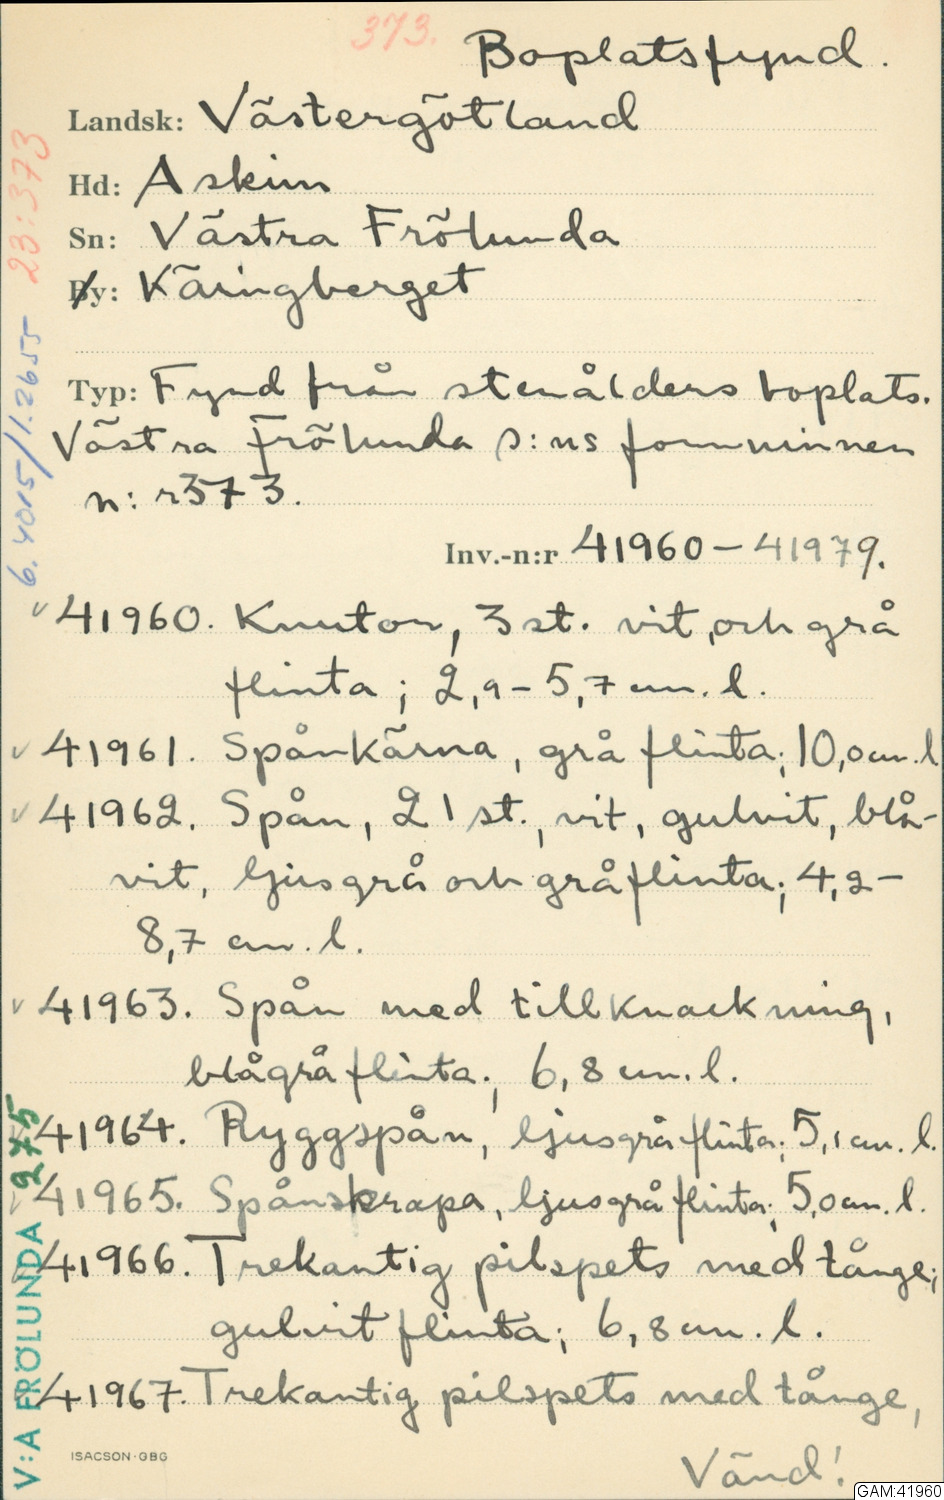 373.
Boplatsfynd.
Landsk: Västergötland
Hd: Askim
Sn: Västra Frölunda
By: Käringberget
Typ: Fynd från stenålders boplats.
Västra Frölunda s:ns fornminnen
n:r 373.
Inv.-n:r 41960-41979.
41960. Knutor, 3 st. vit, och grå
flinta; 2,9-5,7 cm. l.
41961. Spånkärna, grå flinta; 10,0 cm. l
41962. Spån, 21 st., vit, gulvit, blå-
vit, ljusgrå och grå flinta; 4,2-
8,7 cm. l.
41963. Spån med tillknackning,
blågrå flinta; 6,8 cm. l.
41964. Ryggspån, ljusgrå flinta; 5,1 cm. l.
41965. Spånskrapa, ljusgrå flinta; 5,0 cm. l.
41966. Trekantig pilspets med tånge;
gulvit flinta; 6,8 cm. l.
41967. Trekantig pilspets med tånge,
Vänd!
ISACSON·GBG
V:A FRÖLUNDA 275
6.4015/1.2655 23:373
GAM:41960